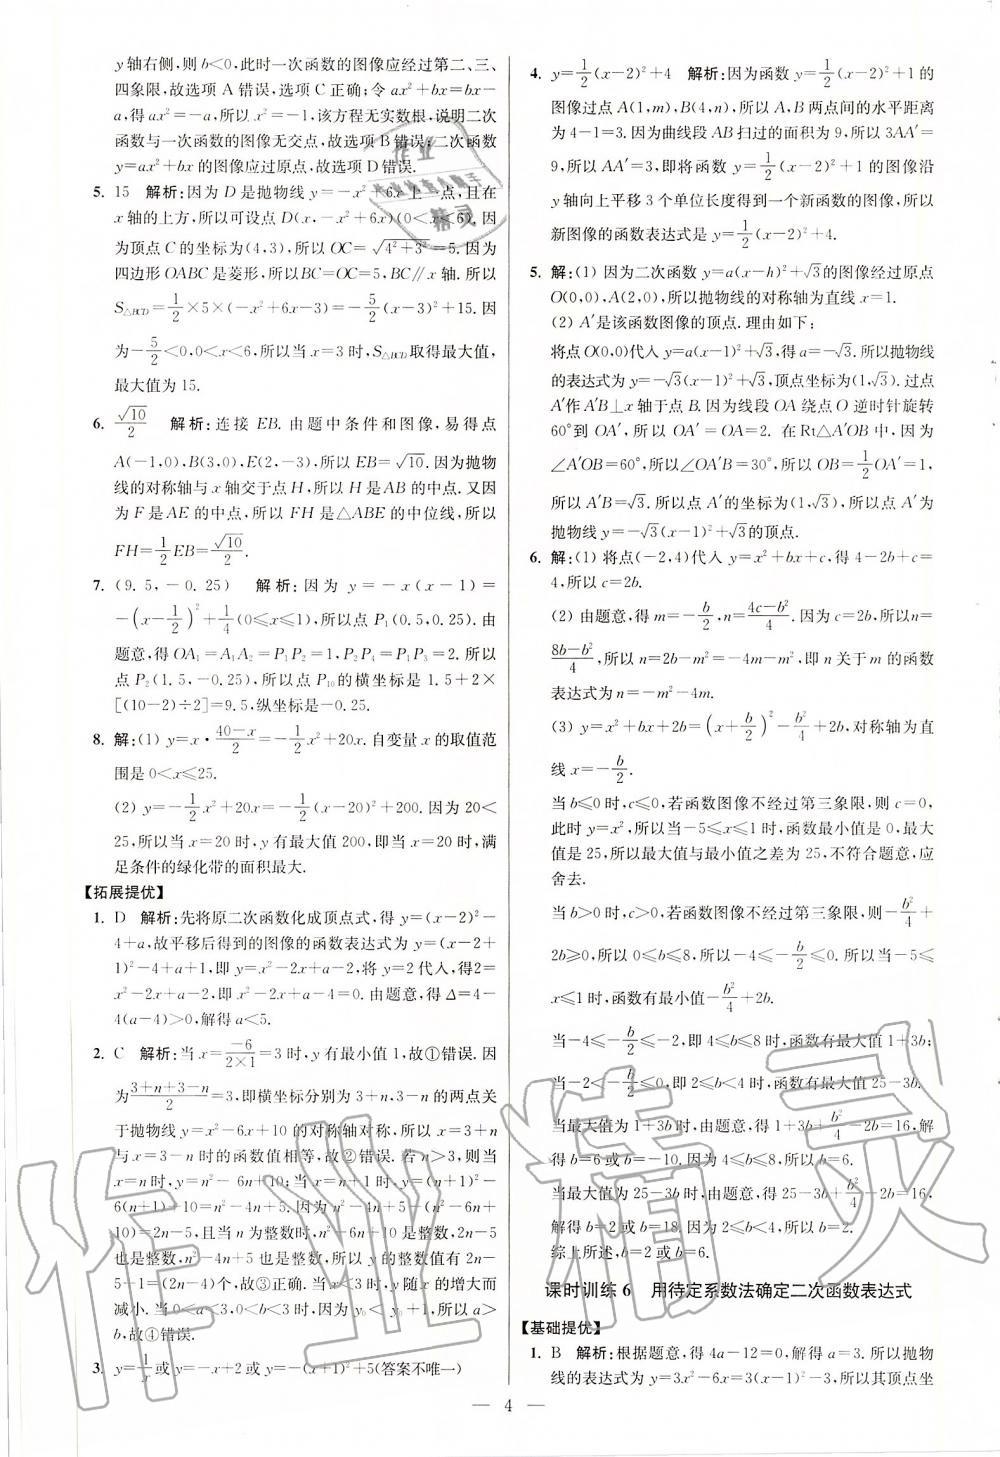 y轴右侧,则 b<0,此时一次函数的图像应经过第二、三、
四象限,故选项 A 错误,选项 C 正确;令 ax²+bx=bx-
a,得 ax²=-a,所以 x²=-1,该方程无实数根,说明二次
函数与一次函数的图像无交点,故选项 B 错误;二次函数
y=ax²+bx 的图像应过原点,故选项 D 错误.
5. 15 解析:因为 D 是抛物线 y=-x²+6x 上一点,且在
x 轴的上方,所以可设点 D(x,-x²+6x)(0<x<6). 因
为顶点 C 的坐标为(4,3),所以 OC=√(4²+3²)=5. 因为
四边形 OABC 是菱形,所以BC=OC=5,BC∥x 轴. 所以
S△BCD=1/2×5×(-x²+6x-3)=-5/2(x-3)²+15. 因
为-5/2<0,0<x<6,所以当 x=3 时,S△BCD取得最大值,
最大值为 15.
6. √10/2 解析:连接 EB. 由题中条件和图像,易得点
A(-1,0),B(3,0),E(2,-3),所以 EB=√10. 因为抛物
线的对称轴与 x 轴交于点 H,所以 H 是 AB 的中点. 又因
为 F 是 AE 的中点,所以 FH 是△ABE 的中位线,所以
FH=1/2EB=√10/2.
7. (9.5,-0.25) 解析:因为 y=-x(x-1)=
-(x-1/2)²+1/4(0≤x≤1),所以点 P₁(0.5,0.25). 由
题意,得 OA₁=A₁A₂=P₁P₂=1,P₁P₃=2. 所以
点 P₂(1.5,-0.25),所以点 P₁₀的横坐标是 1.5+2×
[(10-2)÷2]=9.5,纵坐标是-0.25.
8. 解:(1) y=x·(40-x)/2=-1/2x²+20x. 自变量 x 的取值范
围是 0<x≤25.
(2) y=-1/2x²+20x=-1/2(x-20)²+200. 因为 20<
25,所以当 x=20 时,y 有最大值 200,即当 x=20 时,满
足条件的绿化带的面积最大.
【拓展提优】
1. D 解析:先将原二次函数化成顶点式,得 y=(x-2)²-
4+a,故平移后得到的图像的函数表达式为 y=(x-2+
1)²-4+a+1,即 y=x²-2x+a-2,将 y=2代入,得2=
x²-2x+a-2,即 x²-2x+a-4=0. 由题意,得 Δ=4-
4(a-4)>0,解得 a<5.
2. C 解析:当 x=-(-6)/(2×1)=3 时,y 有最小值 1,故①错误. 因
为(3+n+3-n)/2=3,即横坐标分别为 3+n,3-n 的两点关
于抛物线 y=x²-6x+10 的对称轴对称,所以 x=3+n
与 x=3-n 时的函数值相等,故②错误. 若 n>3,则当
x=n 时,y=n²-6n+10;当 x=n+1 时,y=(n+1)²-
6(n+1)+10=n²-4n+5. 因为 n²-4n+5-(n²-6n+
10)=2n-5,且当 n 为整数时,n²-6n+10 是整数,2n-5
也是整数,n²-4n+5 也是整数,所以 y 的整数值有 2n-
5+1=(2n-4)个,故③正确. 当 x<3 时,y 随 x 的增大而
减小. 当 0<a<3,0<b<3 时,因为 y₀+1>y₀,所以 a>
b,故④错误.
3. y=1/x或 y=-x+2 或 y=-(x+1)²+5(答案不唯一)
4. y=1/2(x-2)²+4 解析:因为函数 y=1/2(x-2)²+1 的
图像过点 A(1,m),B(4,n),所以 A,B 两点间的水平距离
为 4-1=3. 因为曲线段 AB 扫过的面积为 9,所以 3AA′=
9,所以 AA′=3,即将函数 y=1/2(x-2)²+1 的图像沿
y 轴向上平移 3 个单位长度得到一个新函数的图像,所以
新图像的函数表达式是 y=1/2(x-2)²+4.
5. 解:(1) 因为二次函数 y=a(x-h)²+√3的图像经过原点
O(0,0),A(2,0),所以抛物线的对称轴为直线 x=1.
(2) A′是该函数图像的顶点. 理由如下:
将点O(0,0)代入 y=a(x-1)²+√3,得 a=-√3. 所以抛物线
的表达式为 y=-√3(x-1)²+√3,顶点坐标为(1,√3). 过点
A′作 A′B⊥x 轴于点 B. 因为线段 OA 绕点 O 逆时针旋转
60°到 OA′,所以 OA′=OA=2. 在 Rt△A′OB 中,因为
∠A′OB=60°,所以∠OA′B=30°,所以 OB=1/2OA′=1,
所以 A′B=√3. 所以点 A′的坐标为(1,√3),所以点 A′为
抛物线 y=-√3(x-1)²+√3的顶点.
6. 解:(1) 将点(-2,4)代入 y=x²+bx+c,得 4-2b+c=
4,所以 c=2b.
(2) 由题意,得 m=-b/2,n=(4c-b²)/4. 因为 c=2b,所以n=
(8b-b²)/4,所以 n=2b-m²=-4m-m²,即 n 关于 m 的函数
表达式为 n=-m²-4m.
(3) y=x²+bx+2b=(x+b/2)²-b²/4+2b,对称轴为直
线 x=-b/2.
当 b≤0 时,c≤0,若函数图像不经过第三象限,则 c=0,
此时 y=x²,所以当-5≤x≤1 时,函数最小值是 0,最大
值是 25,所以最大值与最小值之差为 25,不符合题意,应
舍去.
当 b>0 时,c>0,若函数图像不经过第三象限,则-b²/4+
2b≥0,所以 0≤b≤8,所以-4≤-b/2≤0,所以当-5≤
x≤1 时,函数有最小值-b²/4+2b.
当-4≤-b/2≤-2,即 4≤b≤8 时,函数有最大值 1+3b;
当-2<-b/2≤0,即 2≤b<4 时,函数有最大值 25-3b.
当最大值为 1+3b 时,由题意,得 1+3b+b²/4-2b=16,解
得 b=6 或 b=-10. 因为 4≤b≤8,所以 b=6.
当最大值为 25-3b 时,由题意,得 25-3b+b²/4-2b=16,
解得 b=2 或 b=18. 因为 2≤b<4,所以 b=2.
综上所述,b=2 或 b=6.
课时训练 6 用待定系数法确定二次函数表达式
【基础提优】
1. B 解析:根据题意,得 4a-12=0,解得 a=3. 所以抛物
线的表达式为 y=3x²-6x=3(x-1)²-3,所以其顶点坐
— 4 —
作业精灵